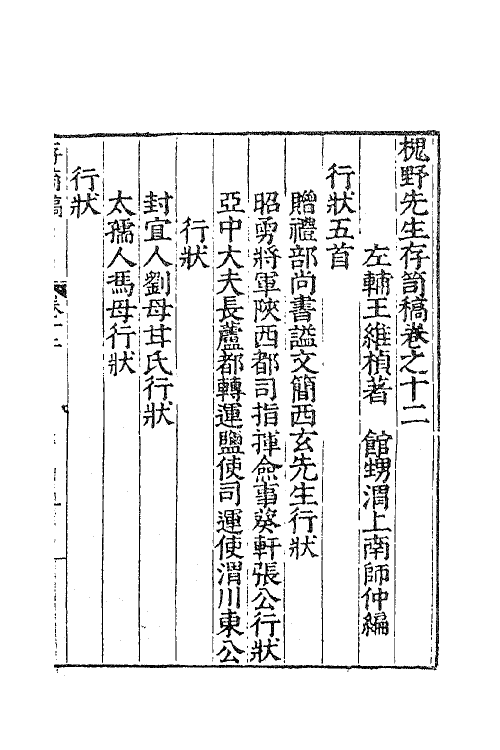 槐野先生存笥稿卷之十二
左輔王維楨著　館甥渭上南師仲編
行狀五首
贈禮部尚書謚文簡西玄先生行狀
昭勇將軍陝西都司指揮僉事葵軒張公行狀
亞中大夫長蘆都轉運鹽使司運使渭川東公
行狀
封宜人劉母甘氏行狀
太孺人馮母行狀
行狀